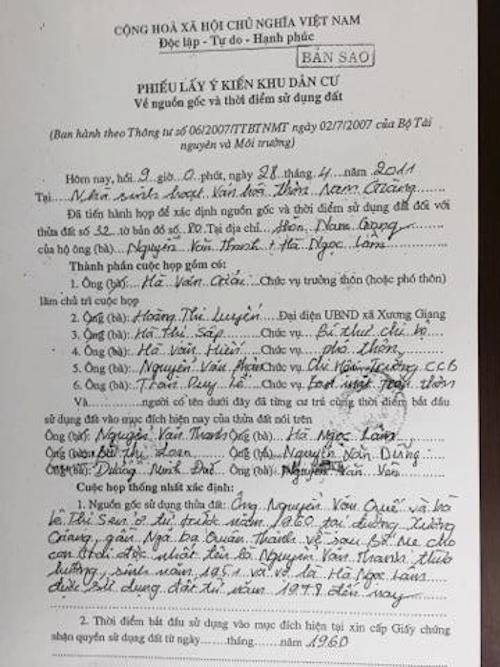 CỘNG HOÀ XÃ HỘI CHỦ NGHĨA VIỆT NAM
Độc lập - Tự do - Hạnh phúc
BẢN SAO
PHIẾU LẤY Ý KIẾN KHU DÂN CƯ
Về nguồn gốc và thời điểm sử dụng đất
(Ban hành theo Thông tư số 06/2007/TTBTNMT ngày 02/7/2007 của Bộ Tài
nguyên và Môi trường)
Hôm nay, hồi 9 giờ 0 phút, ngày 28 tháng 4 năm 2011
Tại Nhà sinh hoạt Văn hóa thôn Nam Giang
Đã tiến hành họp để xác định nguồn gốc và thời điểm sử dụng đất đối với
thửa đất số 32 tờ bản đồ số 20. Tại địa chỉ thôn Nam Giang
của hộ ông (bà) Nguyễn Văn Thanh + Hà Ngọc Lâm
Thành phần cuộc họp gồm có:
1. Ông (bà) Hà Văn Chức vụ trưởng thôn (hoặc phó thôn)
làm chủ trì cuộc họp
2. Ông (bà): Hoàng Thị Luyến Đại diện UBND xã Xương Giang
3. Ông (bà) Hà Thị Sáp Chức vụ Bí thư chi bộ
4. Ông (bà) Hà Văn Hiến Chức vụ phó thôn
5. Ông (bà) Nguyễn Văn Chức vụ Chi Hội Trưởng CCB
6. Ông (bà) Trần Duy Chức vụ thôn
Và người có tên dưới đây đã từng cư trú cùng thời điểm bắt đầu
sử dụng đất vào mục đích hiện nay của thửa đất nói trên
Ông (bà) Nguyễn Văn Thanh Ông (bà) Hà Ngọc Lâm
Ông (bà) Bùi Thị Loan Ông (bà) Nguyễn Văn Dũng
Ông (bà) Dương Minh Nguyễn Văn
Cuộc họp thống nhất xác định:
1. Nguồn gốc sử dụng thửa đất: Ông Nguyễn Văn Quế và bà
Thị Sen ở từ trước năm 1960 tại đường Xương
Giang, gần Ngã Quán Thành về sau Bố Mẹ cho
con trai độc nhất tên là Nguyễn Văn Thanh thừa
hưởng, sinh năm 1951 và vợ là Hà Ngọc Lâm
được sử dụng đất từ năm 1978 đến nay
2. Thời điểm bắt đầu sử dụng vào mục đích hiện tại xin cấp Giấy chứng
nhận quyền sử dụng đất từ ngày......tháng......năm 1960